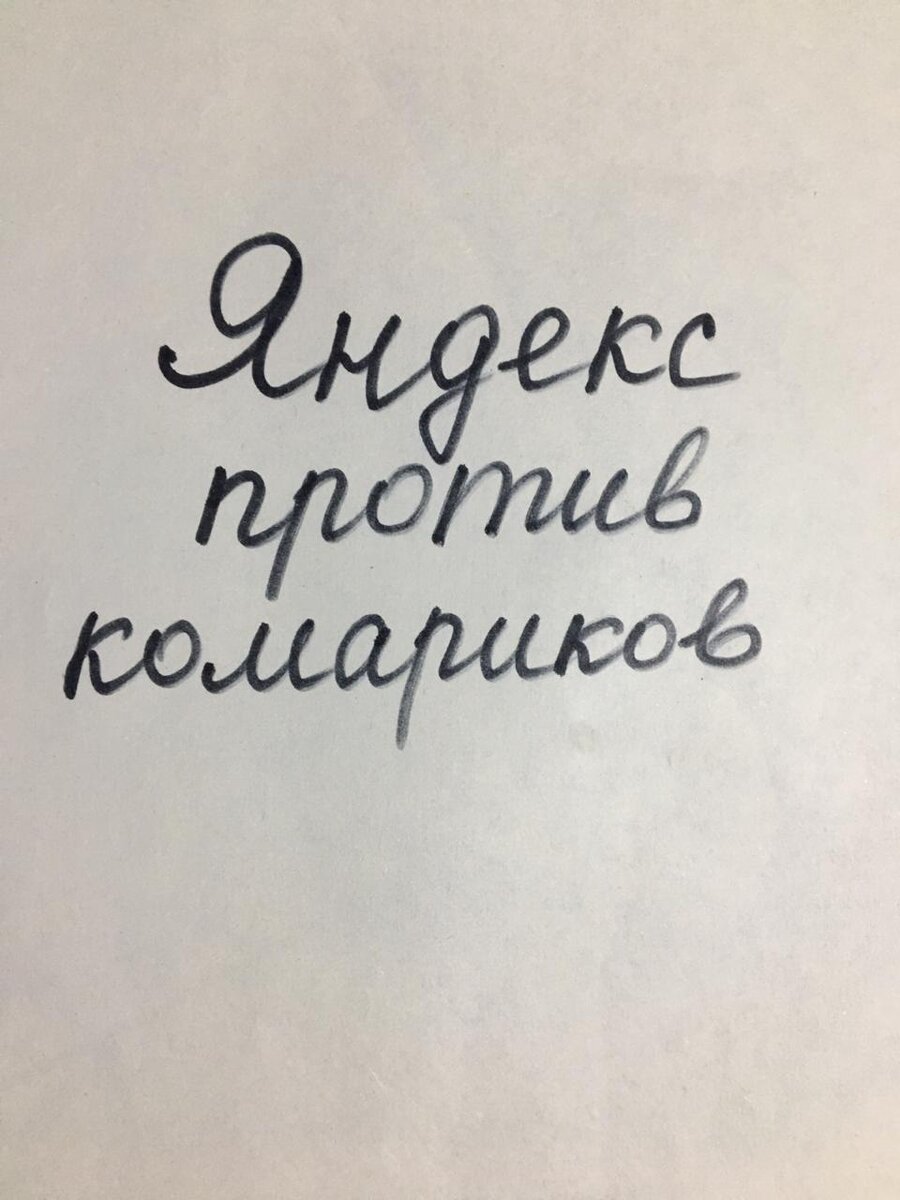 Яндекс
против
комариков